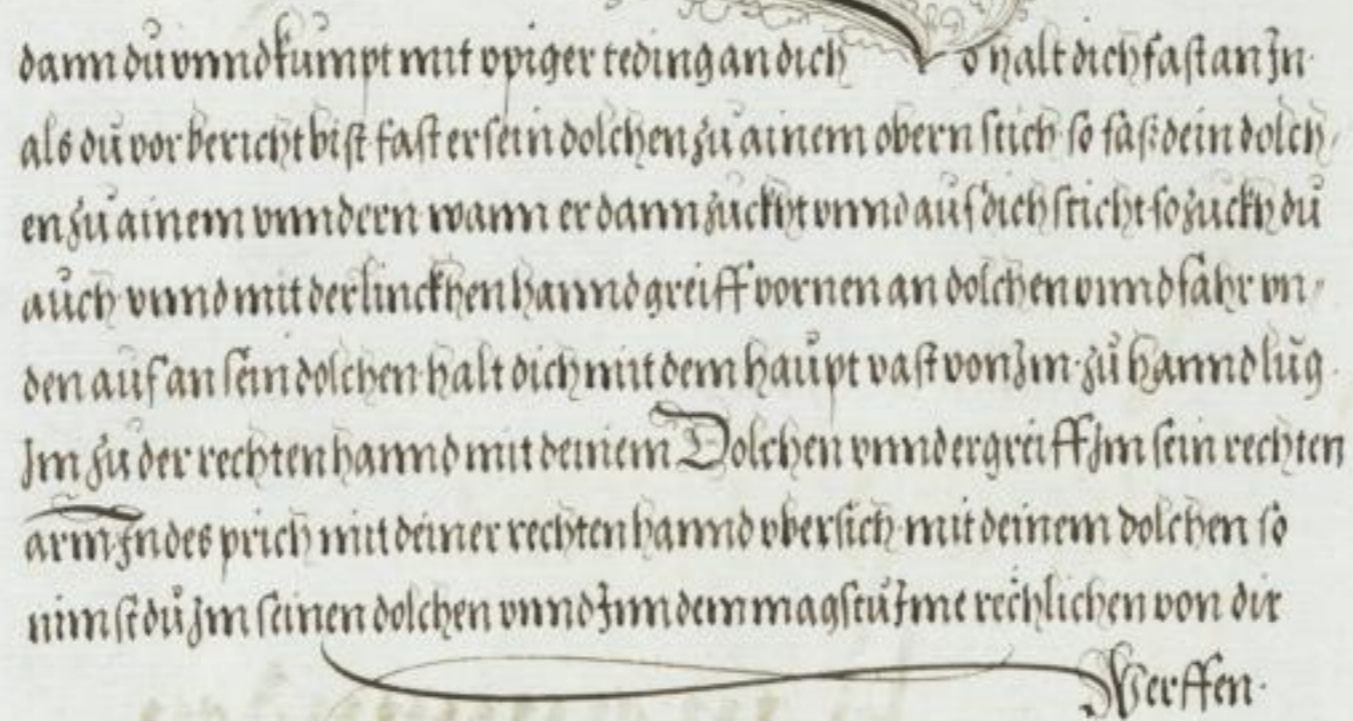 dann dũ vnnd kumpt mit vpiger teding an dich so halt dich fast an Jn.
als dũ vor bericht bist fast er sein dolchen zũ ainem obern stich so fasz dein dolch,
en zũ ainem vnndern wann er dann zuckht vnnd auf dich sticht so zuckh dũ
aũch vnnd mit der linckhen hannd greiff vornen an dolchen vnnd fahr vn,
den auf an sein dolchen halt dich mit dem haũpt vast von Jm. zũ hannd lũg
Jm zũ der rechten hannd mit deinem Dolchen vnnd ergreiff Jm sein rechten
arm Jndes prich mit deiner rechten hannd vbersich mit deinem dolchen so
nimst dũ Jm seinen dolchen vnnd Jnn dem magstũ Jme rechlichen von dir
Werffen.